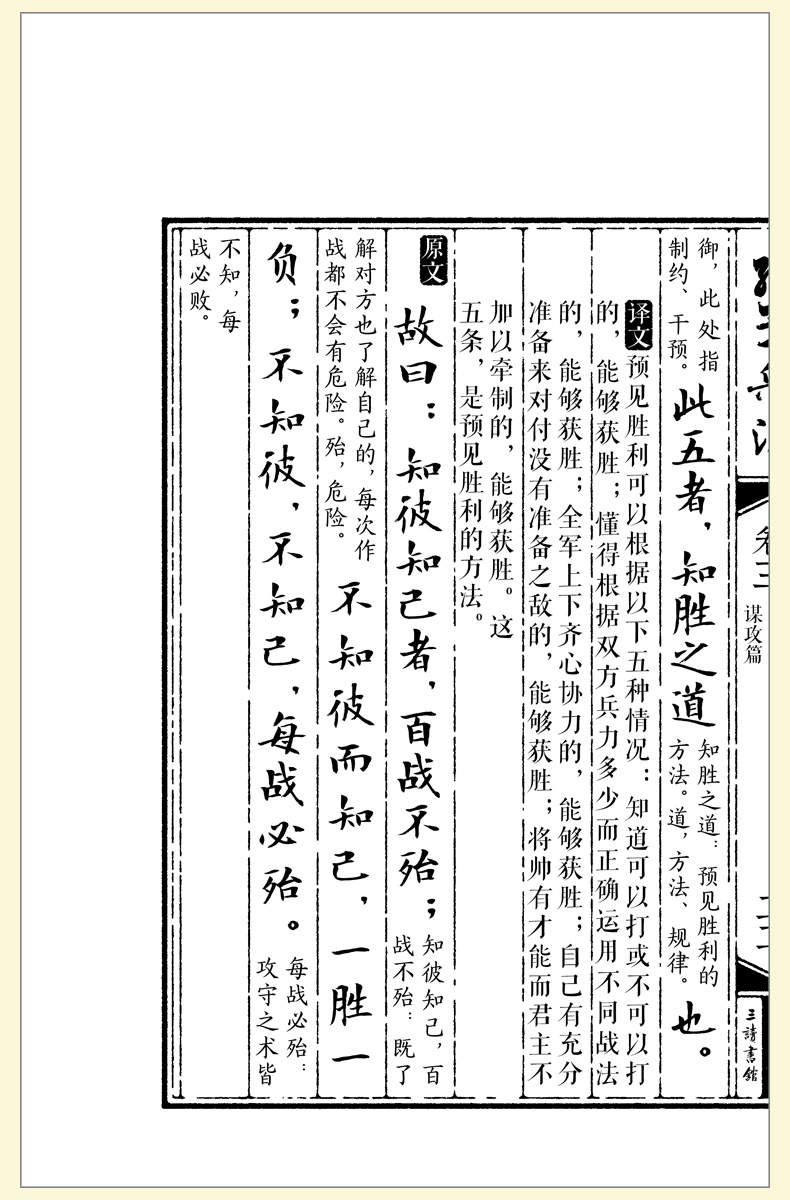 卷三
谋攻篇
三請書館
御，此处指
制约、干预。
此五者，知胜之道
知胜之道：预见胜利的
方法。道，方法、规律。
也。
译文
预见胜利可以根据以下五种情况：知道可以打或不可以打
的，能够获胜；懂得根据双方兵力多少而正确运用不同战法
的，能够获胜；全军上下齐心协力的，能够获胜；自己有充分
准备来对付没有准备之敌的，能够获胜；将帅有才能而君主不
加以牵制的，能够获胜。这
五条，是预见胜利的方法。
原文
故曰：知彼知己者，百战不殆；
知彼知己，百
战不殆：既了
解对方也了解自己的，每次作
战都不会有危险。殆，危险。
不知彼而知己，一胜一
负；不知彼，不知己，每战必殆。
每战必殆：
攻守之术皆
不知，每
战必败。